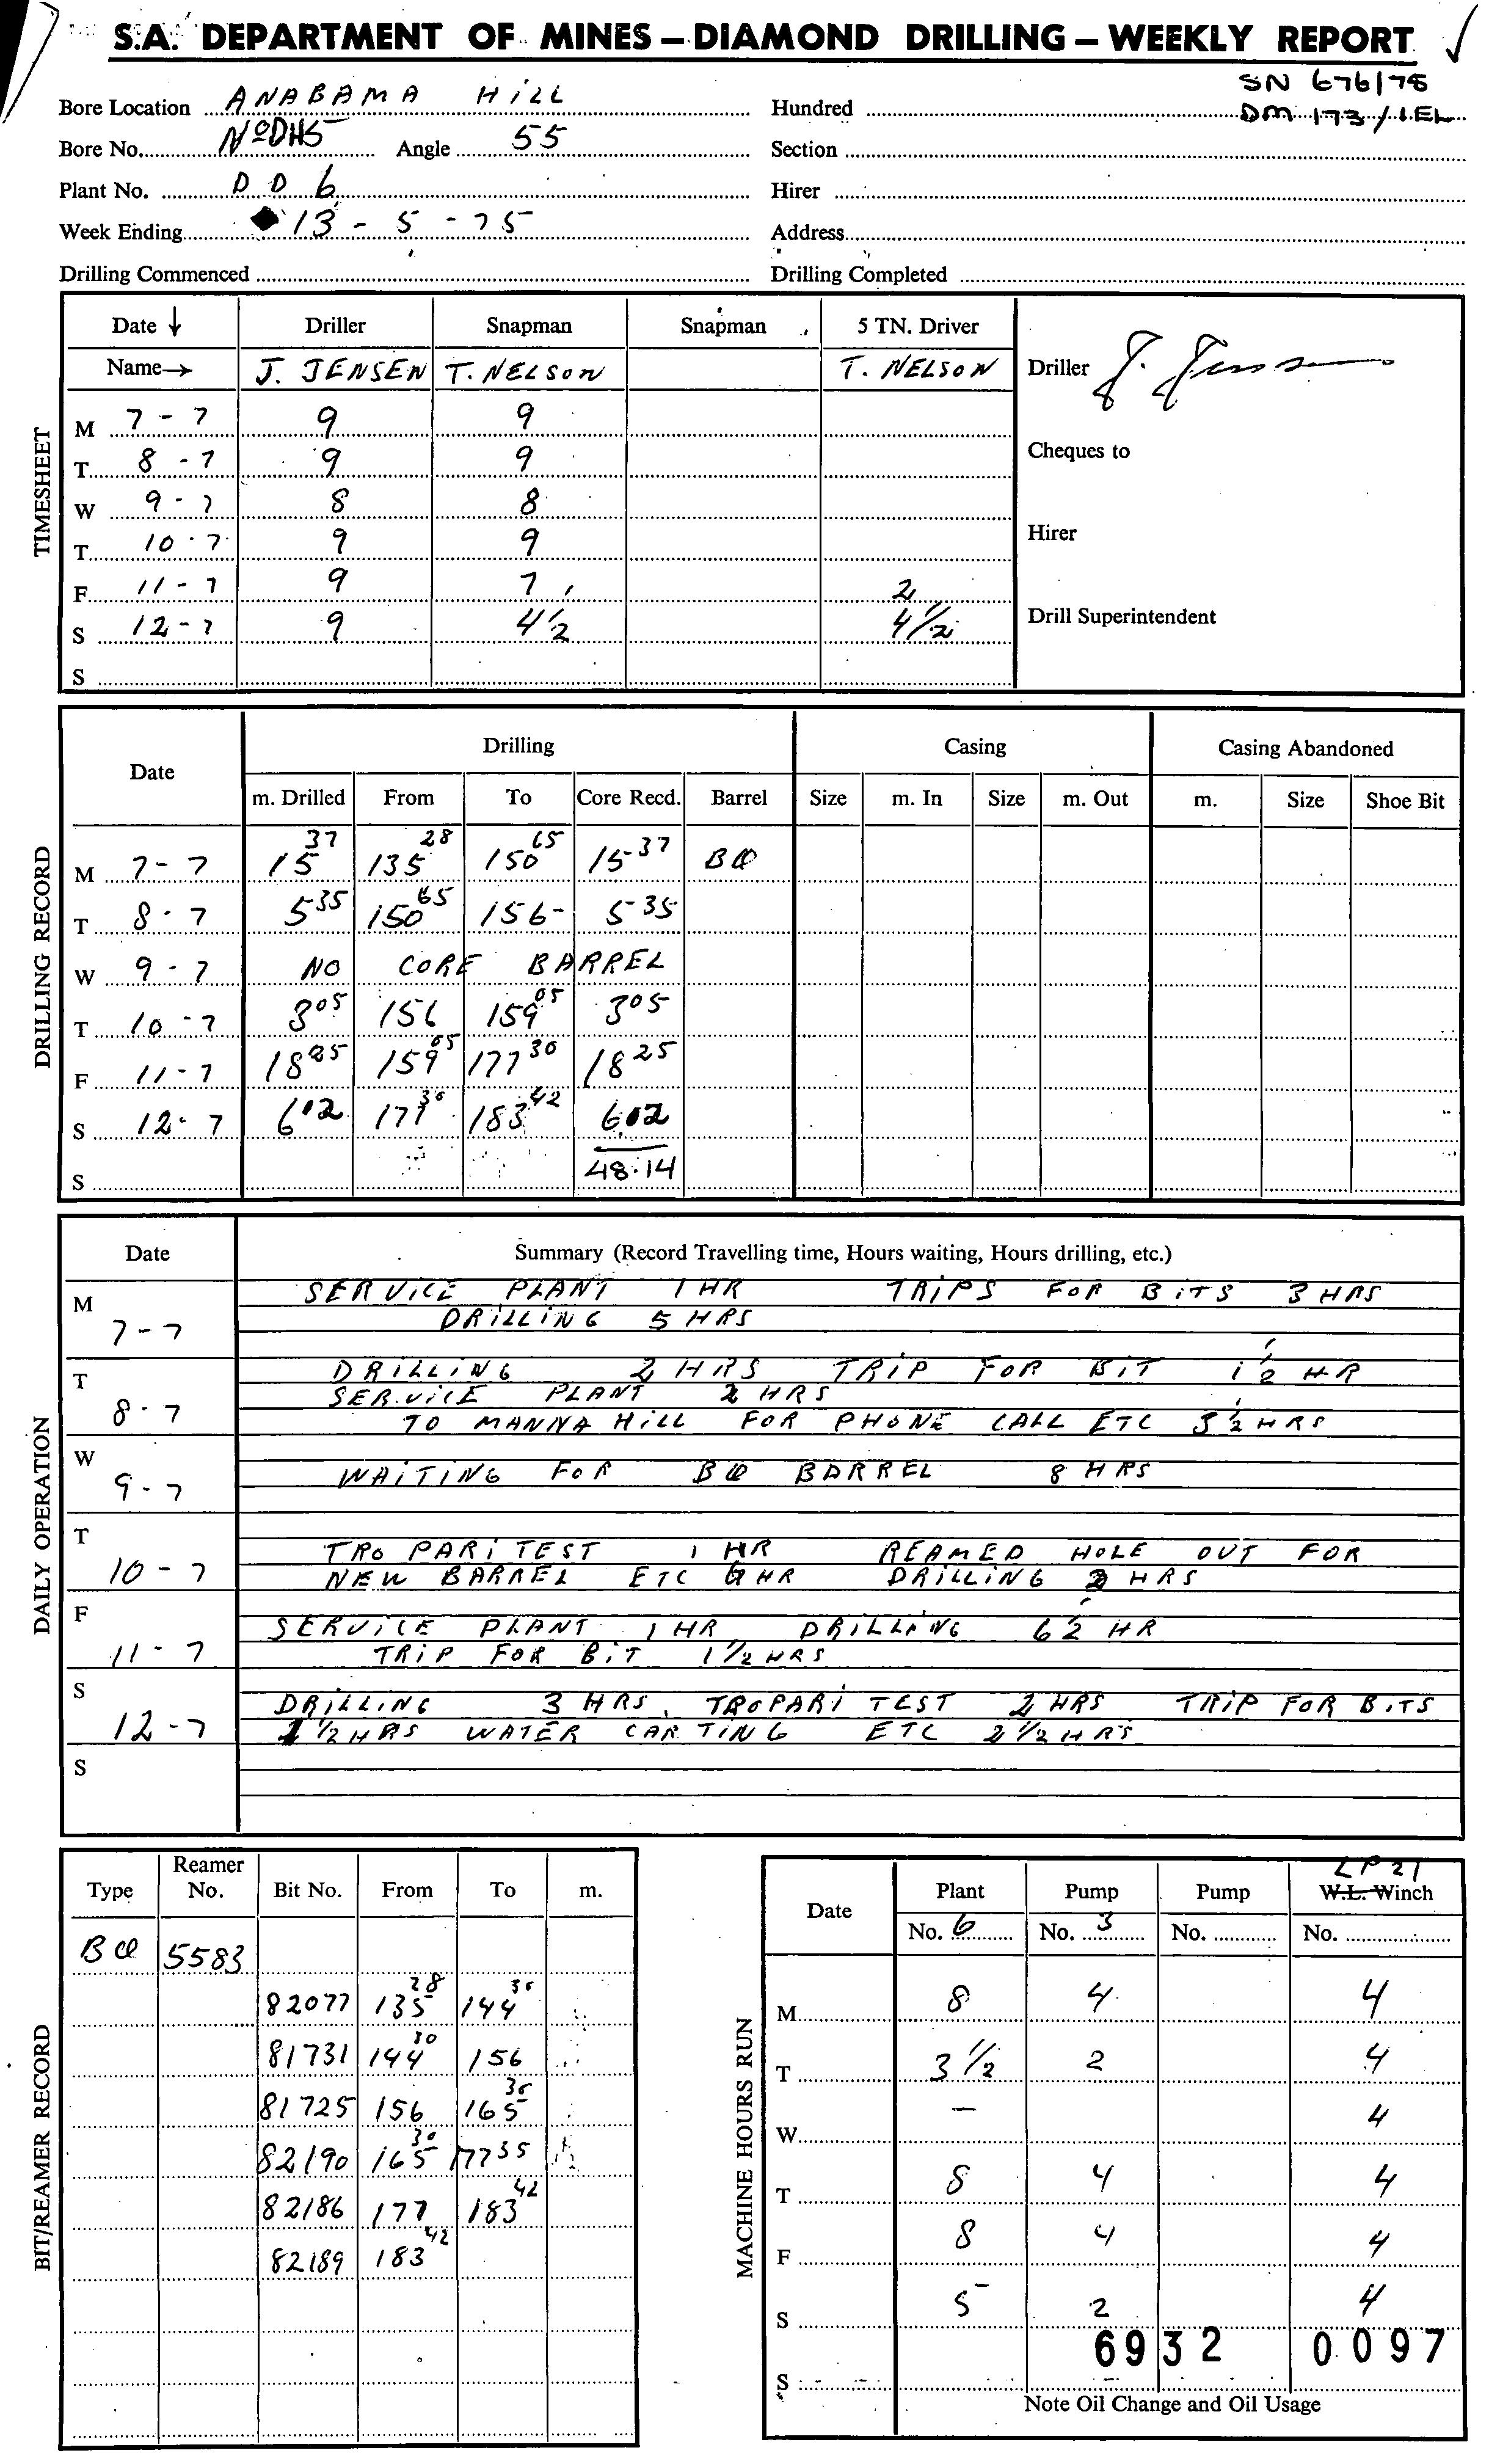 S.A. DEPARTMENT OF MINES – DIAMOND DRILLING – WEEKLY REPORT
SN 676/75
Bore Location ANABAMA HILL Hundred DM 173/1.EL
Bore No. No DH5 Angle 55 Section
Plant No. D D 6 Hirer
Week Ending 13 - 5 - 75 Address
Drilling Commenced Drilling Completed
TIMESHEET
Date ↓ Driller Snapman Snapman 5 TN. Driver
Name→ J. JENSEN T. NELSON T. NELSON Driller J. Jensen
M 7 - 7 9 9
T 8 - 7 9 9 Cheques to
W 9 - 7 8 8
T 10 - 7 9 9 Hirer
F 11 - 7 9 7 2
S 12 - 7 9 4½ 4½ Drill Superintendent
S
DRILLING RECORD
Date Drilling Casing Casing Abandoned
m. Drilled From To Core Recd. Barrel Size m. In Size m. Out m. Size Shoe Bit
M 7 - 7 15 37 135 28 150 65 15-37 BQ
T 8 - 7 5 35 150 65 156- 5-35
W 9 - 7 NO CORE BARREL
T 10 - 7 3 05 156 159 05 3 05
F 11 - 7 18 25 159 05 177 30 18 25
S 12 - 7 6.12 177 30 183 42 6.02
S 48.14
DAILY OPERATION
Date Summary (Record Travelling time, Hours waiting, Hours drilling, etc.)
M 7 - 7 SERVICE PLANT 1 HR TRIPS FOR BITS 3 HRS
DRILLING 5 HRS
T 8 - 7 DRILLING 2 HRS TRIP FOR BIT 1½ HR
SERVICE PLANT 2 HRS
TO MANNA HILL FOR PHONE CALL ETC 3½ HRS
W 9 - 7 WAITING FOR BQ BARREL 8 HRS
T 10 - 7 TRO PARI TEST 1 HR REAMED HOLE OUT FOR
NEW BARREL ETC HR DRILLING HRS
F 11 - 7 SERVICE PLANT 1 HR DRILLING 6½ HR
TRIP FOR BIT 1½ HRS
S 12 - 7 DRILLING 3 HRS, TROPARI TEST 2 HRS TRIP FOR BITS
1½ HRS WATER CARTING ETC 2½ HRS
S
BIT/REAMER RECORD
Type Reamer No. Bit No. From To m.
BQ 5583
82077 135 28 144 30
81731 144 30 156
81725 156 165 30
82190 165 30 177 35
82186 177 183 42
82189 183 42
MACHINE HOURS RUN
LP 21
Date Plant Pump Pump W.L. Winch
No. 6 No. 3 No. No.
M 8 4 4
T 3½ 2 4
W – 4
T 8 4 4
F 8 4 4
S 5 2 4
6932 0097
S
Note Oil Change and Oil Usage